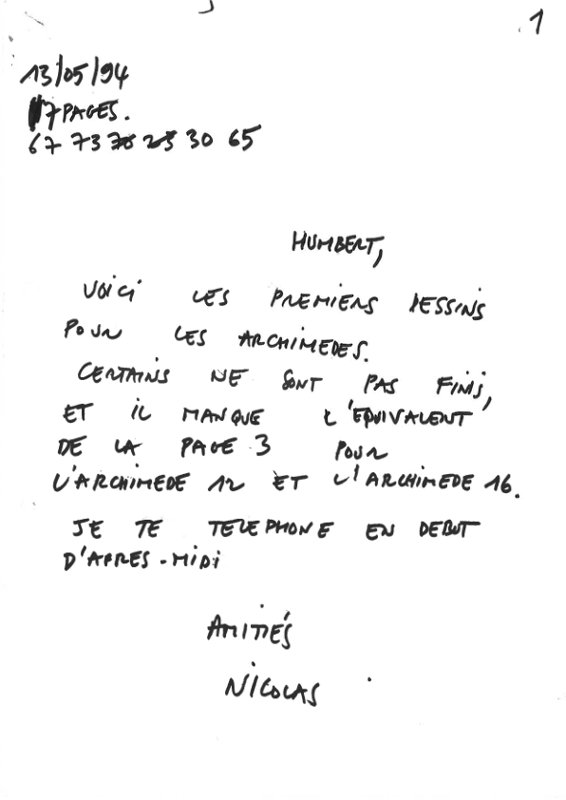 1
13/05/94
7 PAGES.
67 73 30 65
HUMBERT,
VOICI LES PREMIERS DESSINS
POUR LES ARCHIMEDES.
CERTAINS NE SONT PAS FINIS,
ET IL MANQUE L'EQUIVALENT
DE LA PAGE 3 POUR
L'ARCHIMEDE 12 ET L'ARCHIMEDE 16.
JE TE TELEPHONE EN DEBUT
D'APRES-MIDI
AMITIÉS
NICOLAS